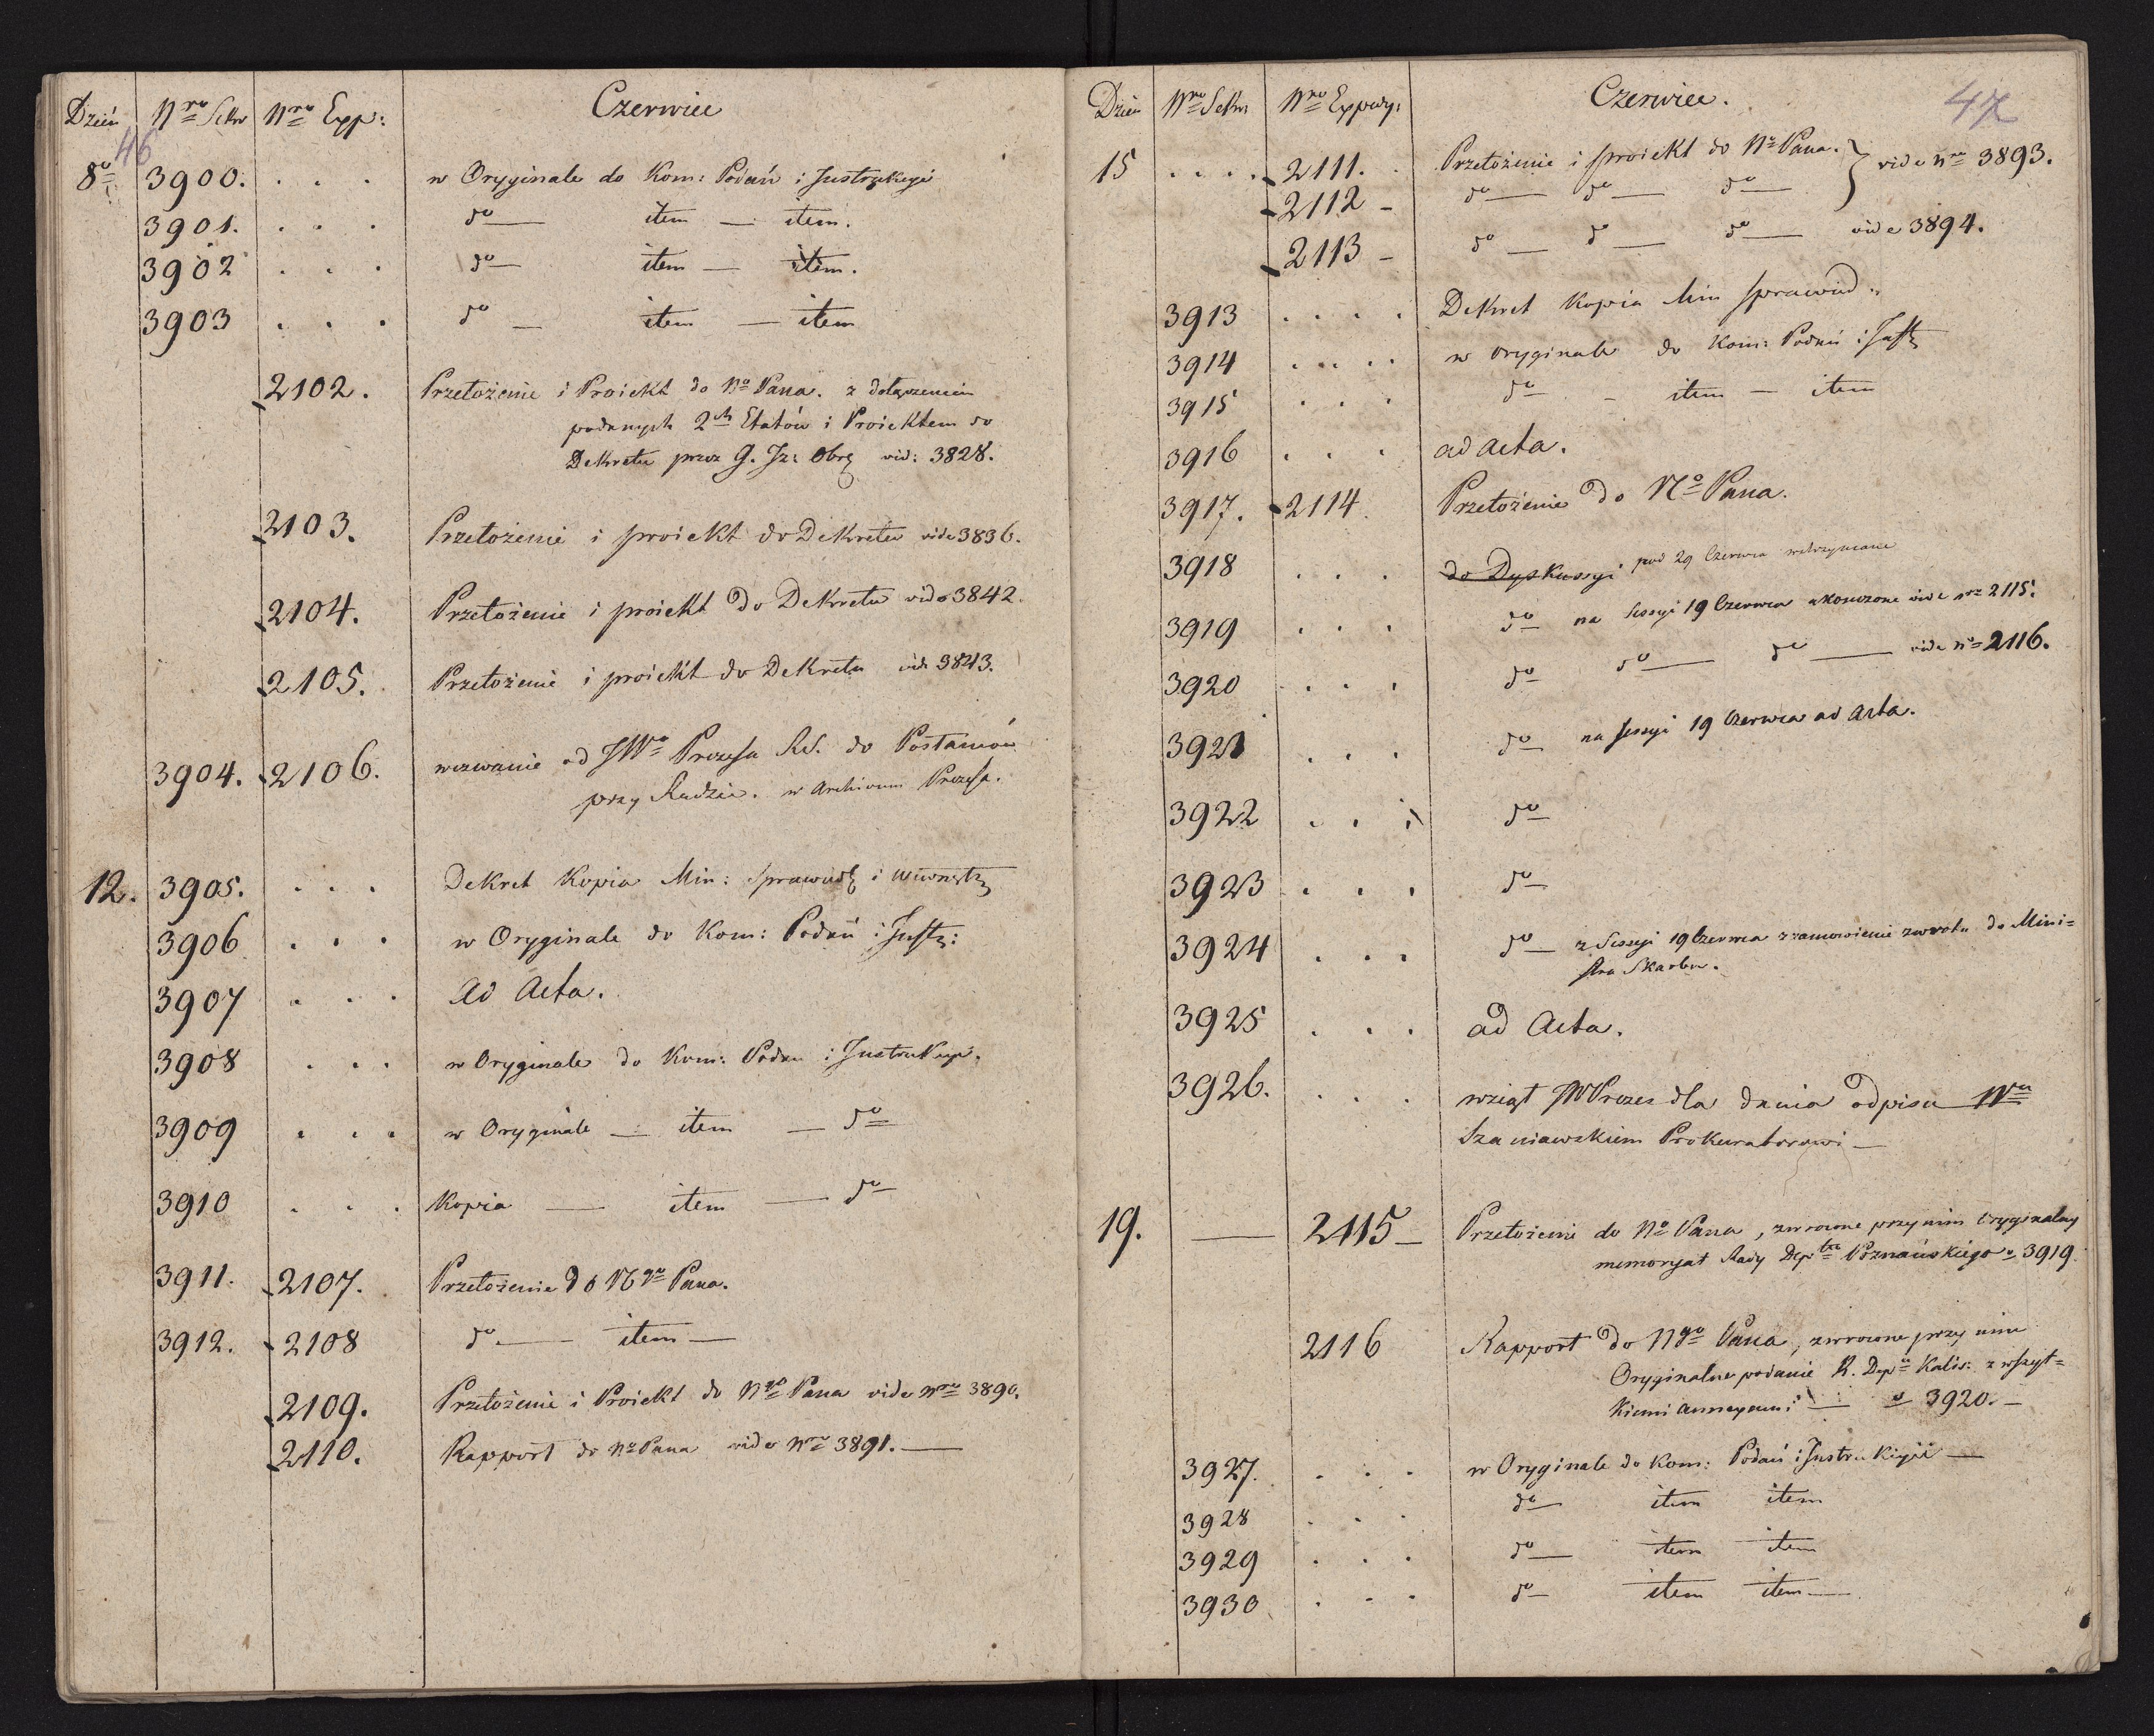 46
Dzień Nro Sekr Nro Exp: Czerwiec
8o 3900. . . . w Oryginale do Kom: Podań i Instrukcyi
3901. . . . do — item — item.
3902 . . . do — item — item.
3903 . . . do — item — item
2102. Przełożenie i Proiekt do No Pana. z dołączeniem
podanych 2ch Etatów i Proiektem do
Dekretu przez G. Iz: Obrę vid: 3828.
2103. Przełożenie i proiekt do Dekretu vide 3836.
2104. Przełożenie i proiekt do Dekretu vide 3842.
2105. Przełożenie i proiekt do Dekretu vide 3843.
3904. 2106. wezwanie od JWo Prezesa RS. do Postanow
przy Radzie. w Archivum Prezesa.
12. 3905. . . . Dekret Kopia Min: Sprawiedl i Wewnętrz
3906 . . . w Oryginale do Kom: Podań i Instr:
3907 . . . Ad Acta.
3908 . . . w Oryginale do Kom: Podań i Instrukcyi.
3909 . . . w Oryginale — item — do
3910 . . . Kopia — item — do
3911. 2107. Przełożenie do Ngo Pana.
3912. 2108 do — item —
2109. Przełożenie i Proiekt do Ngo Pana vide Nro 3890.
2110. Rapport do No Pana vide Nro 3891. —
47
Dzień Nro Sekr Nro Expedy: Czerwiec.
15 . . . . 2111. Przełożenie i proiekt do No Pana. } vide Nro 3893.
2112 – do — do — do —
2113 – do — do — do — vide 3894.
3913 . . . . Dekret Kopia Min Sprawied.
3914 . . . . w oryginale do Kom: Podań i Instr
3915 . . . do – item — item
3916 . . . ad Acta.
3917. 2114. Przełożenie do No Pana.
3918 . . . do Dyskussyi pod 29 Czerwca wstrzymane
3919 . . . do na Sessyi 19 Czerwca ukończone vide nro 2115.
3920 . . . do do — do — vide No 2116.
3921 . . . do na Sessyi 19 Czerwca ad Acta.
3922 . . . do
3923 . . . do
3924 . . . do — z Sessyi 19 Czerwca zwrotu do Mini=
stra Skarbu.
3925 . . . ad Acta.
3926. . . . wziął JW Prezes dla dania odpisu Wu
Szaniawskiem Prokuratorowi —
19. — 2115 – Przełożenie do No Pana, zwrócone przy nim oryginalny
memoryał Rady Depttu Poznańskiego v 3919.
2116 Rapport do Ngo Pana, zwrócone przy nim
Oryginalne podanie R. Depu Kalis: z wszyt=
kiemi annexami — v 3920. –
3927. . . . w Oryginale do Kom: Podań i Instrukcyi —
3928 . . . do — item item
3929 . . . do — item item
3930 . . . do — item item —